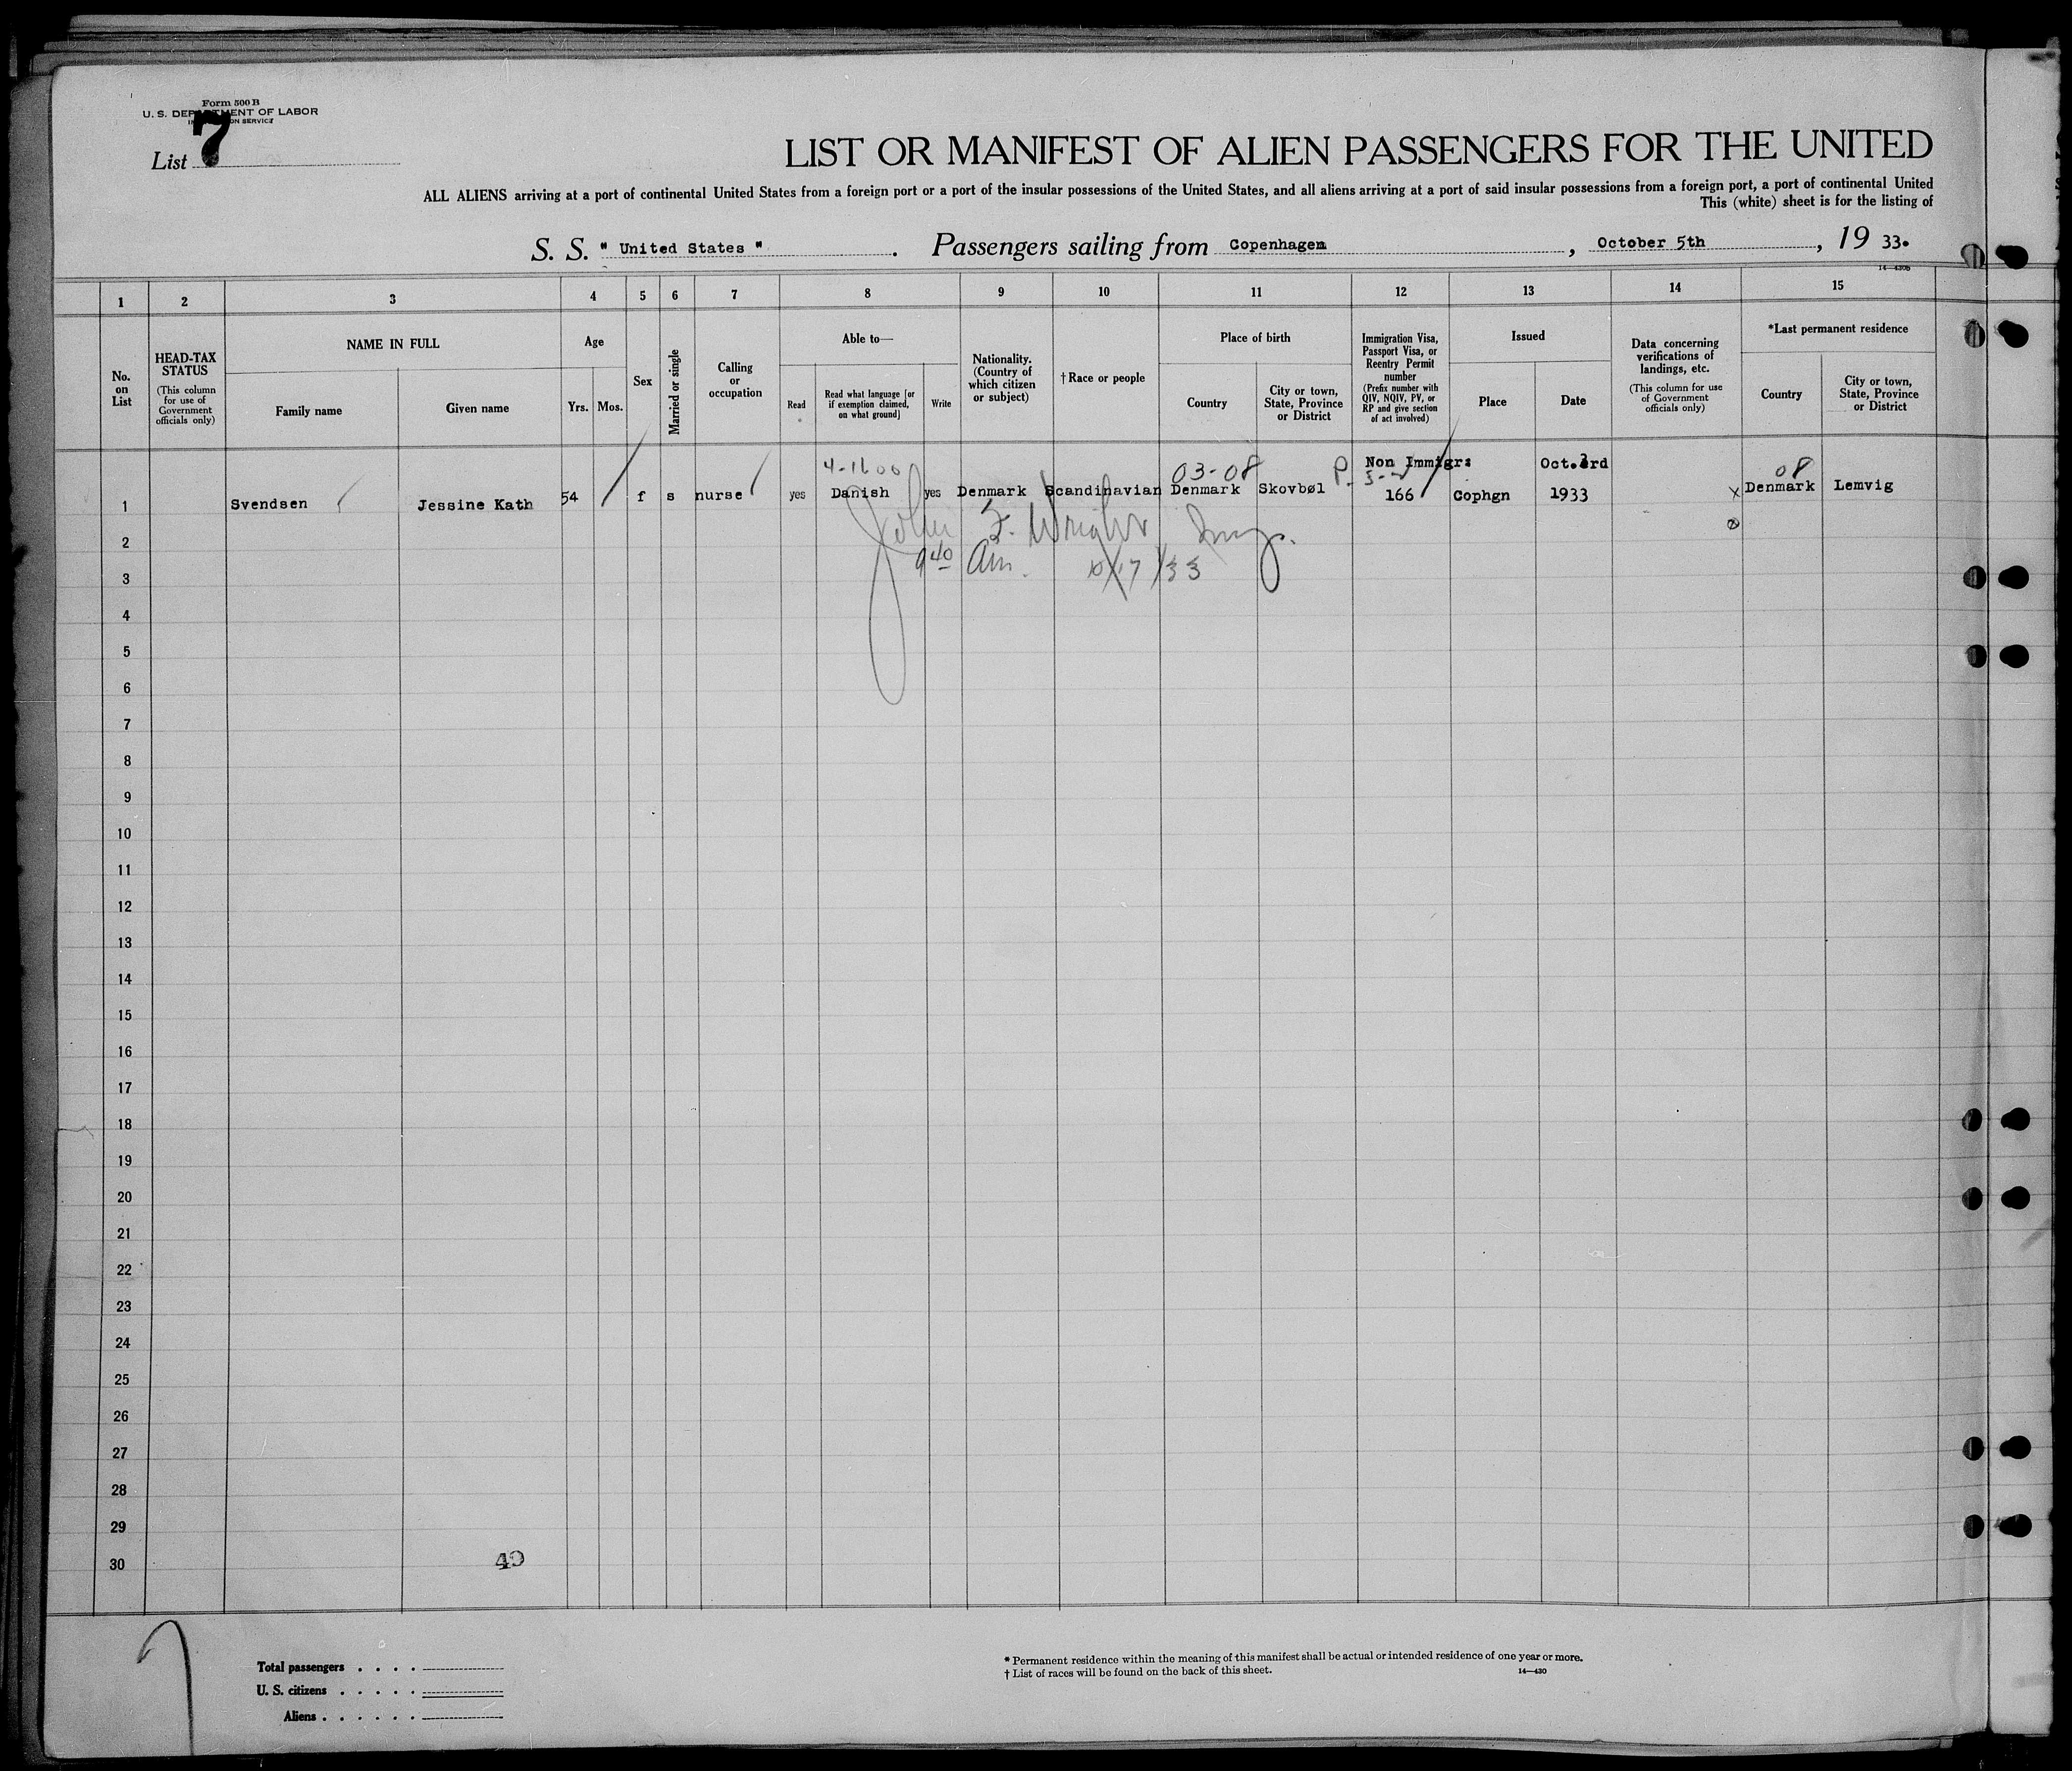 Form 500 B
U. S. DEPARTMENT OF LABOR
List 7
LIST OR MANIFEST OF ALIEN PASSENGERS FOR THE UNITED
ALL ALIENS arriving at a port of continental United States from a foreign port or a port of the insular possessions of the United States, and all aliens arriving at a port of said insular possessions from a foreign port, a port of continental United
This (white) sheet is for the listing of
S. S. "United States". Passengers sailing from Copenhagen, October 5th, 19 33.
14—430B
1 2 3 4 5 6 7 8 9 10 11 12 13 14 15
No. on List
HEAD-TAX STATUS (This column for use of Government officials only)
NAME IN FULL
Family name
Given name
Age
Yrs. Mos.
Sex
Married or single
Calling or occupation
Able to—
Read
Read what language [or if exemption claimed, on what ground]
Write
Nationality. (Country of which citizen or subject)
†Race or people
Place of birth
Country
City or town, State, Province or District
Immigration Visa, Passport Visa, or Reentry Permit number (Prefix number with QIV, NQIV, PV, or RP and give section of act involved)
Issued
Place
Date
Data concerning verifications of landings, etc. (This column for use of Government officials only)
*Last permanent residence
Country
City or town, State, Province or District
4-1600 03-08 P. 3-2 Non Immigr: Oct.3rd 08
1 Svendsen Jessine Kath 54 f s nurse yes Danish yes Denmark Scandinavian Denmark Skovbøl 166 Cophgn 1933 x Denmark Lemvig
John F. Wright Insp.
2
9 40 Am. 10/17/33
3
4
5
6
7
8
9
10
11
12
13
14
15
16
17
18
19
20
21
22
23
24
25
26
27
28
29
30
49
Total passengers . . . .
U. S. citizens . . . . .
Aliens . . . . . .
* Permanent residence within the meaning of this manifest shall be actual or intended residence of one year or more.
† List of races will be found on the back of this sheet. 14—430